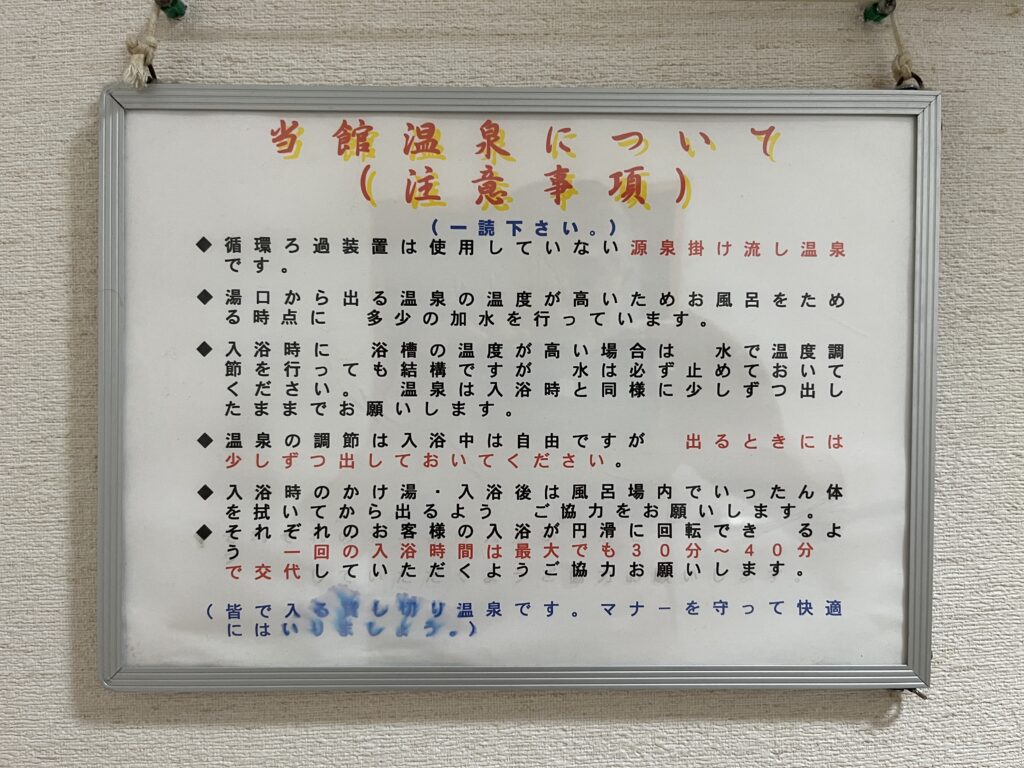 当館温泉について
(注意事項)
(一読下さい。)
◆循環ろ過装置は使用していない源泉掛け流し温泉
です。
◆湯口から出る温泉の温度が高いためお風呂をため
る時点に 多少の加水を行っています。
◆入浴時に 浴槽の温度が高い場合は 水で温度調
節を行っても結構ですが 水は必ず止めておいて
ください。 温泉は入浴時と同様に少しずつ出し
たままでお願いします。
◆温泉の調節は入浴中は自由ですが 出るときには
少しずつ出しておいてください。
◆入浴時のかけ湯・入浴後は風呂場内でいったん体
を拭いてから出るよう ご協力をお願いします。
◆それぞれのお客様の入浴が円滑に回転でき るよ
う 一回の入浴時間は最大でも30分~40分
で交代していただくようご協力お願いします。
(皆で入る貸し切り温泉です。マナーを守って快適
にはいりましょう。)